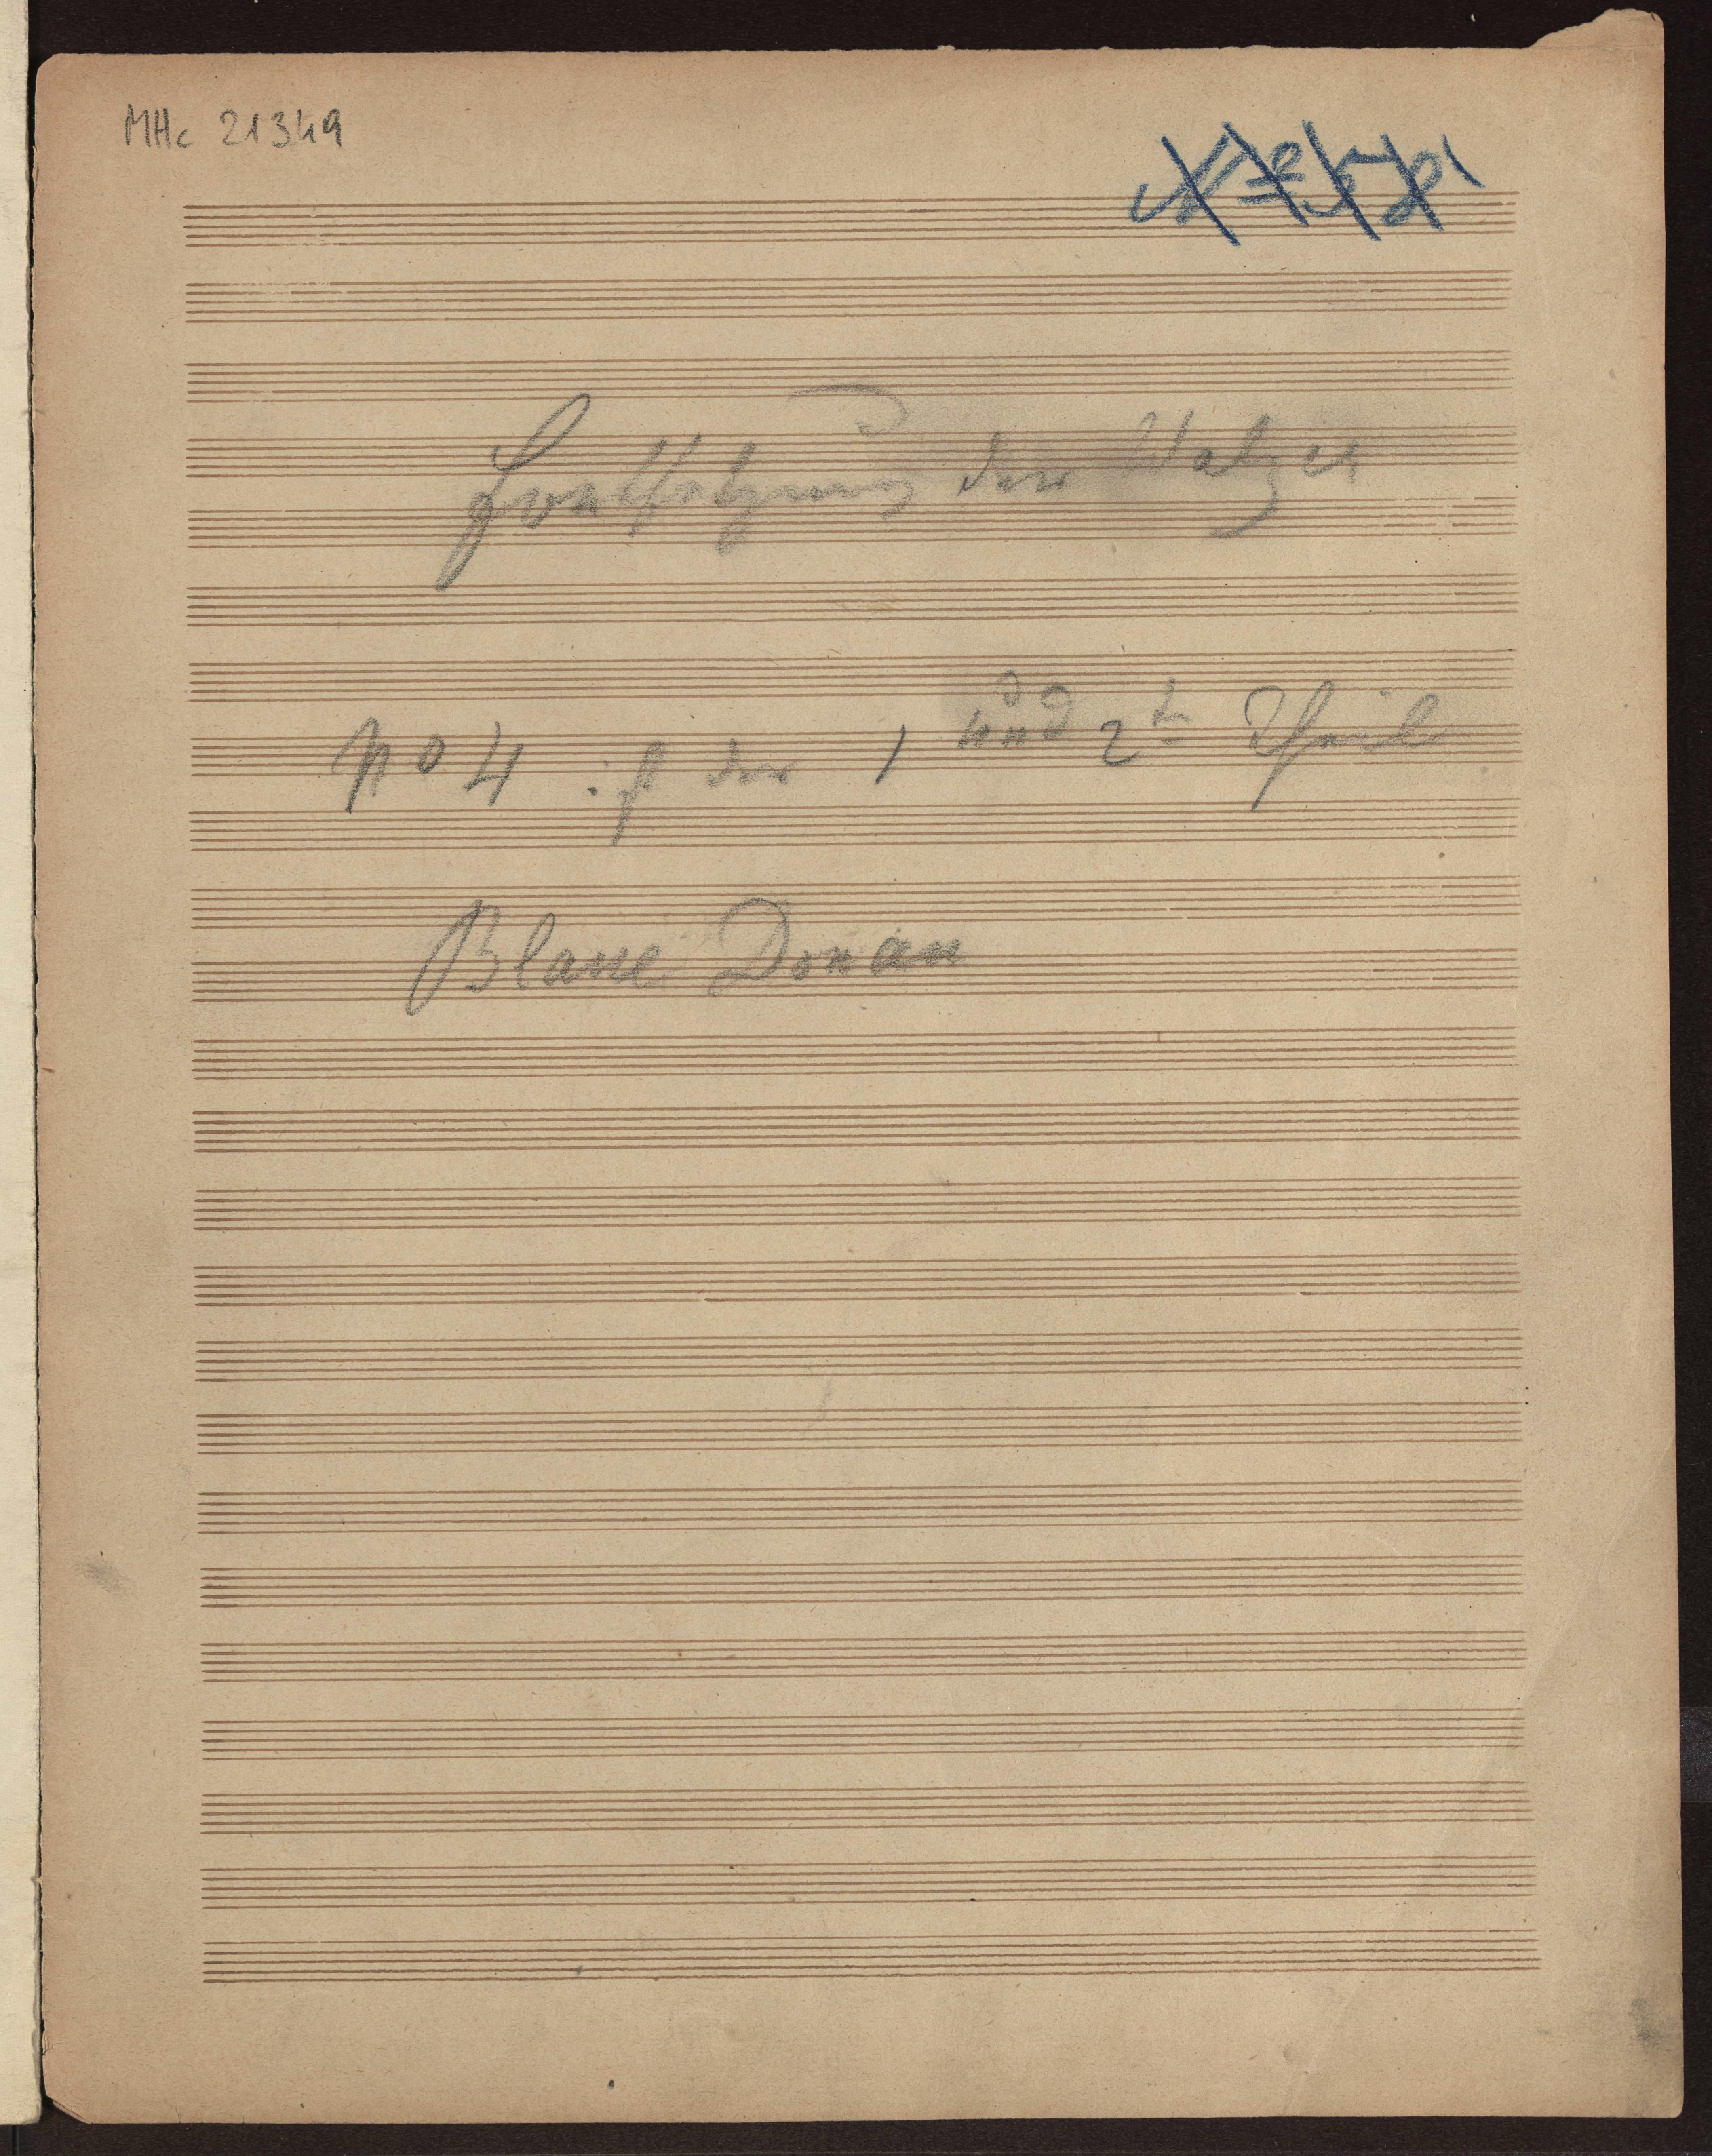 MHc 21349
Fortsetzung der Walzer
No 4 ist der 1 und 2te Theil
Blaue Donau